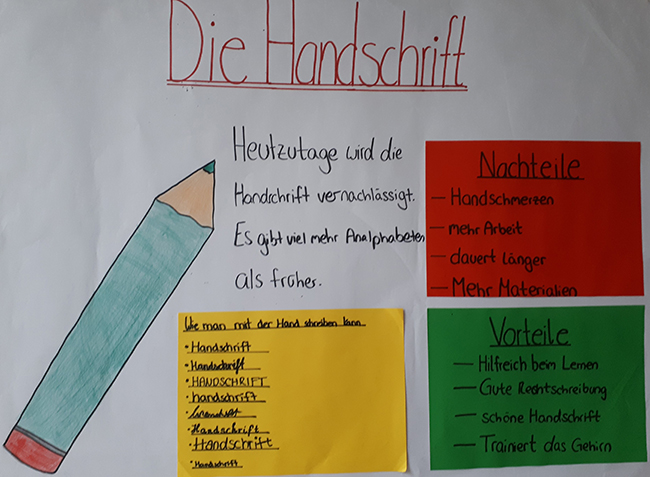 Die Handschrift
Heutzutage wird die
Handschrift vernachlässigt.
Es gibt viel mehr Analphabeten
als früher.
Nachteile
— Handschmerzen
— mehr Arbeit
— dauert länger
— Mehr Materialien
Wie man mit der Hand schreiben kann
• Handschrift
• Handschrift
• HANDSCHRIFT
• handschrift
• Handschrift
• Handschrift
• Handschrift
Vorteile
— Hilfreich beim Lernen
— Gute Rechtschreibung
— schöne Handschrift
— Trainiert das Gehirn